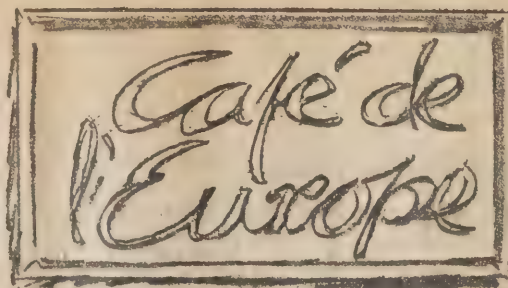 Café de
l'Europe